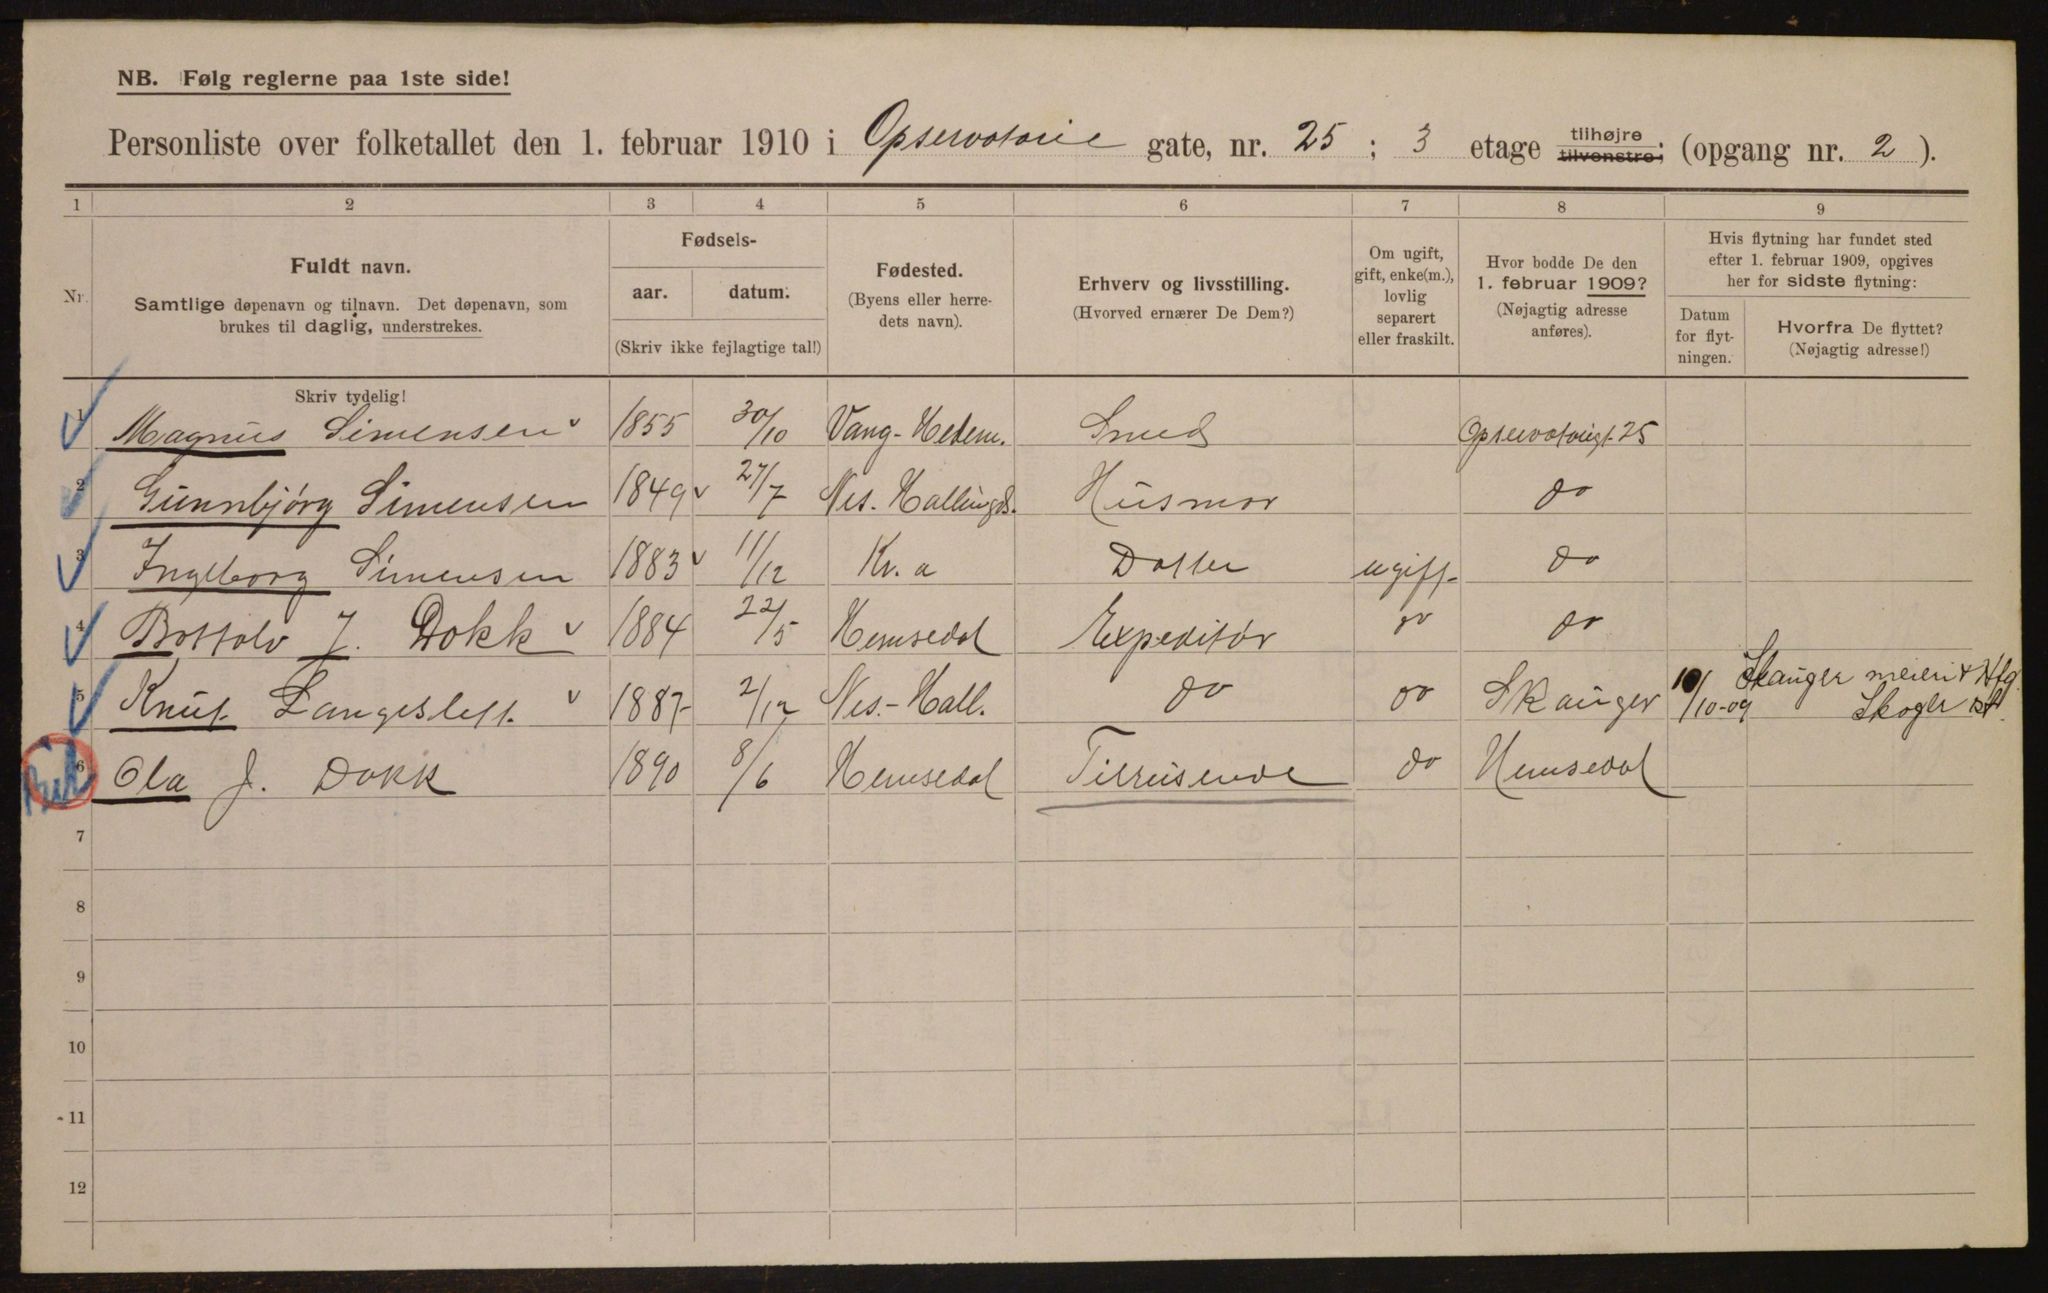 NB. Følg reglerne paa 1ste side!
Personliste over folketallet den 1. februar 1910 i Opservatorie gate, nr. 25 ; 3 etage tilhøjre tilvenstre; (opgang nr. 2 ).
1 2 3 4 5 6 7 8 9
Nr.
Fuldt navn.
Samtlige døpenavn og tilnavn. Det døpenavn, som
brukes til daglig, understrekes.
Fødsels-
aar. datum.
(Skriv ikke fejlagtige tal!)
Fødested.
(Byens eller herre-
dets navn).
Erhverv og livsstilling.
(Hvorved ernærer De Dem?)
Om ugift,
gift, enke(m.),
lovlig
separert
eller fraskilt.
Hvor bodde De den
1. februar 1909?
(Nøjagtig adresse
anføres).
Hvis flytning har fundet sted
efter 1. februar 1909, opgives
her for sidste flytning:
Datum
for flyt-
ningen.
Hvorfra De flyttet?
(Nøjagtig adresse!)
Skriv tydelig!
1 Magnus Simensen 1855 30/10 Vang-Hedem. Smed Opservatorigt. 25
2 Gunnbjörg Simensen 1849 27/7 Nes. Hallingd. Husmor do
3 Ingeborg Simensen 1883 11/12 Kr.a Datter ugift do
4 Bottolv J. Dokk 1884 22/5 Hemsedal Expeditör do do
5 Knut Langeslett 1887 2/12 Nes.-Hall. do do Skauger 10/10-09 Skauger meieri
Skoger st.
6 Ola J. Dokk 1890 8/6 Hemsedal Tilreisende do Hemsedal
7
8
9
10
11
12